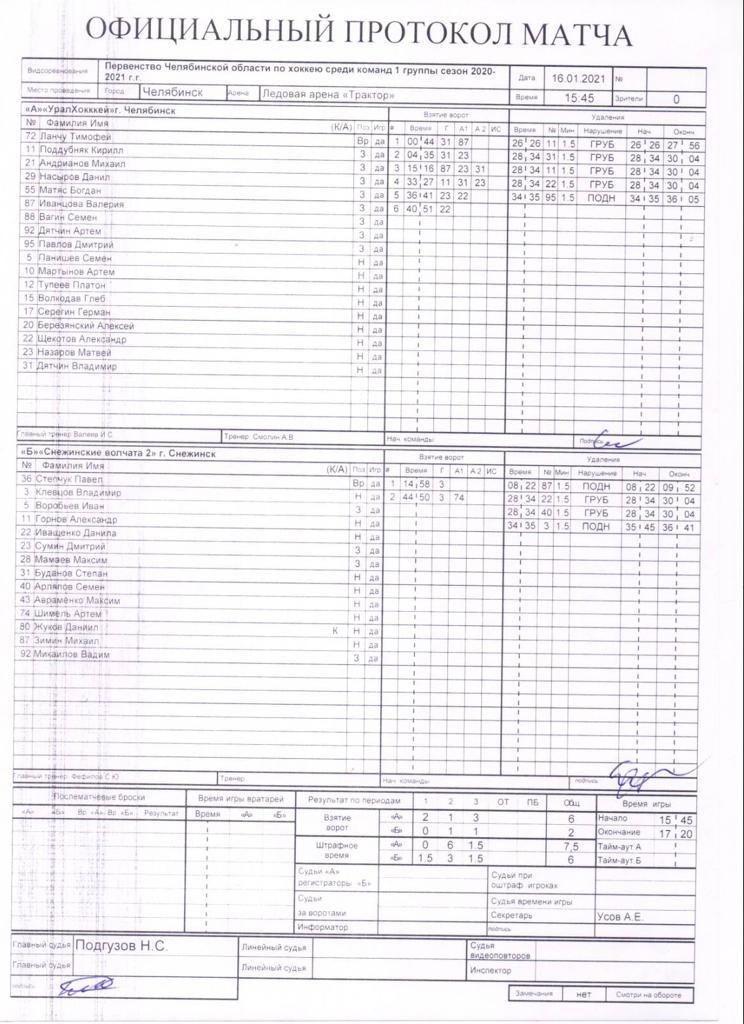 ОФИЦИАЛЬНЫЙ ПРОТОКОЛ МАТЧА
Видсоревнования Первенство Челябинской области по хоккею среди команд 1 группы сезон 2020-2021 г.г. Дата 16.01.2021 №
Место проведения Город Челябинск Арена Ледовая арена «Трактор» Время 15:45 Зрители 0
«А»«УралХокккей»г. Челябинск Взятие ворот Удаления
№ Фамилия Имя (К/А) Поз Игр # Время Г А1 А2 ИС Время № Мин Нарушение Нач. Оконч
72 Ланчу Тимофей Вр да 1 00 44 31 87 26 26 11 1.5 ГРУБ 26 26 27 56
11 Поддубняк Кирилл З да 2 04 35 31 23 28 34 31 1.5 ГРУБ 28 34 30 04
21 Андрианов Михаил З да 3 15 16 87 23 31 28 34 11 1.5 ГРУБ 28 34 30 04
29 Насыров Данил З да 4 33 27 11 31 23 28 34 22 1.5 ГРУБ 28 34 30 04
55 Матяс Богдан З да 5 36 41 23 22 34 35 95 1.5 ПОДН 34 35 36 05
87 Иванцова Валерия З да 6 40 51 22
88 Вагин Семен З да
92 Дятчин Артем З да
95 Павлов Дмитрий З да
5 Панишев Семён Н да
10 Мартынов Артем Н да
12 Тупеев Платон Н да
15 Волкодав Глеб Н да
17 Серегин Герман Н да
20 Березянский Алексей Н да
22 Щекотов Александр Н да
23 Назаров Матвей Н да
31 Дятчин Владимир Н да
Главный тренер Валеев И.С. Тренер Смолин А.В. Нач. команды Подпись
«Б»«Снежинские волчата 2» г. Снежинск Взятие ворот Удаления
№ Фамилия Имя (К/А) Поз Игр # Время Г А1 А2 ИС Время № Мин Нарушение Нач Оконч
36 Степчук Павел Вр да 1 14 58 3 08 22 87 1.5 ПОДН 08 22 09 52
3 Клевцов Владимир Н да 2 44 50 3 74 28 34 22 1.5 ГРУБ 28 34 30 04
5 Воробьев Иван З да 28 34 40 1.5 ГРУБ 28 34 30 04
11 Горнов Александр Н да 34 35 3 1.5 ПОДН 35 45 36 41
22 Иващенко Данила Н да
23 Сумин Дмитрий З да
28 Мамаев Максим З да
31 Буданов Степан Н да
40 Арляпов Семен Н да
43 Авраменко Максим Н да
74 Шимель Артем Н да
80 Жуков Даниил К Н да
87 Зимин Михаил Н да
92 Михайлов Вадим З да
Главный тренер Фефилов С.Ю. Тренер Нач. команды подпись
Послематчевые броски Время игры вратарей Результат по периодам 1 2 3 ОТ ПБ Общ Время игры
«А» «Б» Вр «А» Вр «Б» Результат Время «А» «Б» Взятие ворот «А» 2 1 3 6 Начало 15 45
«Б» 0 1 1 2 Окончание 17 20
Штрафное время «А» 0 6 1.5 7,5 Тайм-аут А
«Б» 1.5 3 1.5 6 Тайм-аут Б
Судьи «А» регистраторы «Б» Судьи при оштраф. игроках
Судьи за воротами Судья времени игры
Секретарь Усов А.Е.
Информатор подпись
Главный судья Подгузов Н.С. Линейный судья Судья видеоповторов
Главный судья Линейный судья Инспектор
подпись
Замечания нет Смотри на обороте